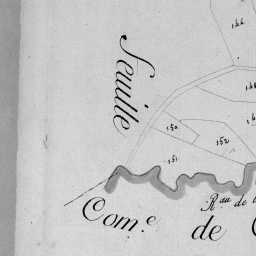 feuille
166
150
152
151
R.au de
Com.e de